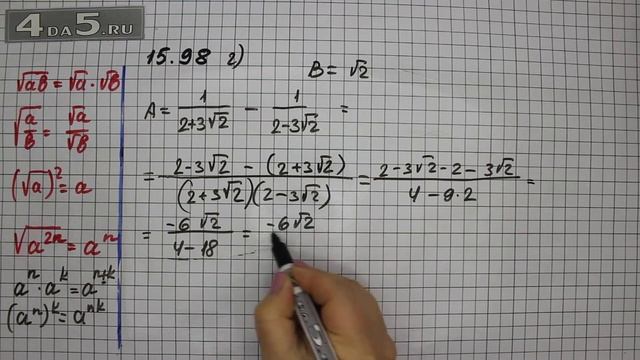 4DA5.RU
15.98 г)
B = √2
√aB = √a · √B
√(a/B) = √a/√B
(√a)² = a
√(a²ⁿ) = aⁿ
aⁿ · aᵏ = aⁿ⁺ᵏ
(aⁿ)ᵏ = aⁿᵏ
A = 1/(2+3√2) − 1/(2−3√2) =
= (2−3√2 − (2+3√2))/((2+3√2)(2−3√2)) = (2−3√2−2−3√2)/(4−9·2) =
= (−6√2)/(4−18) = −6√2